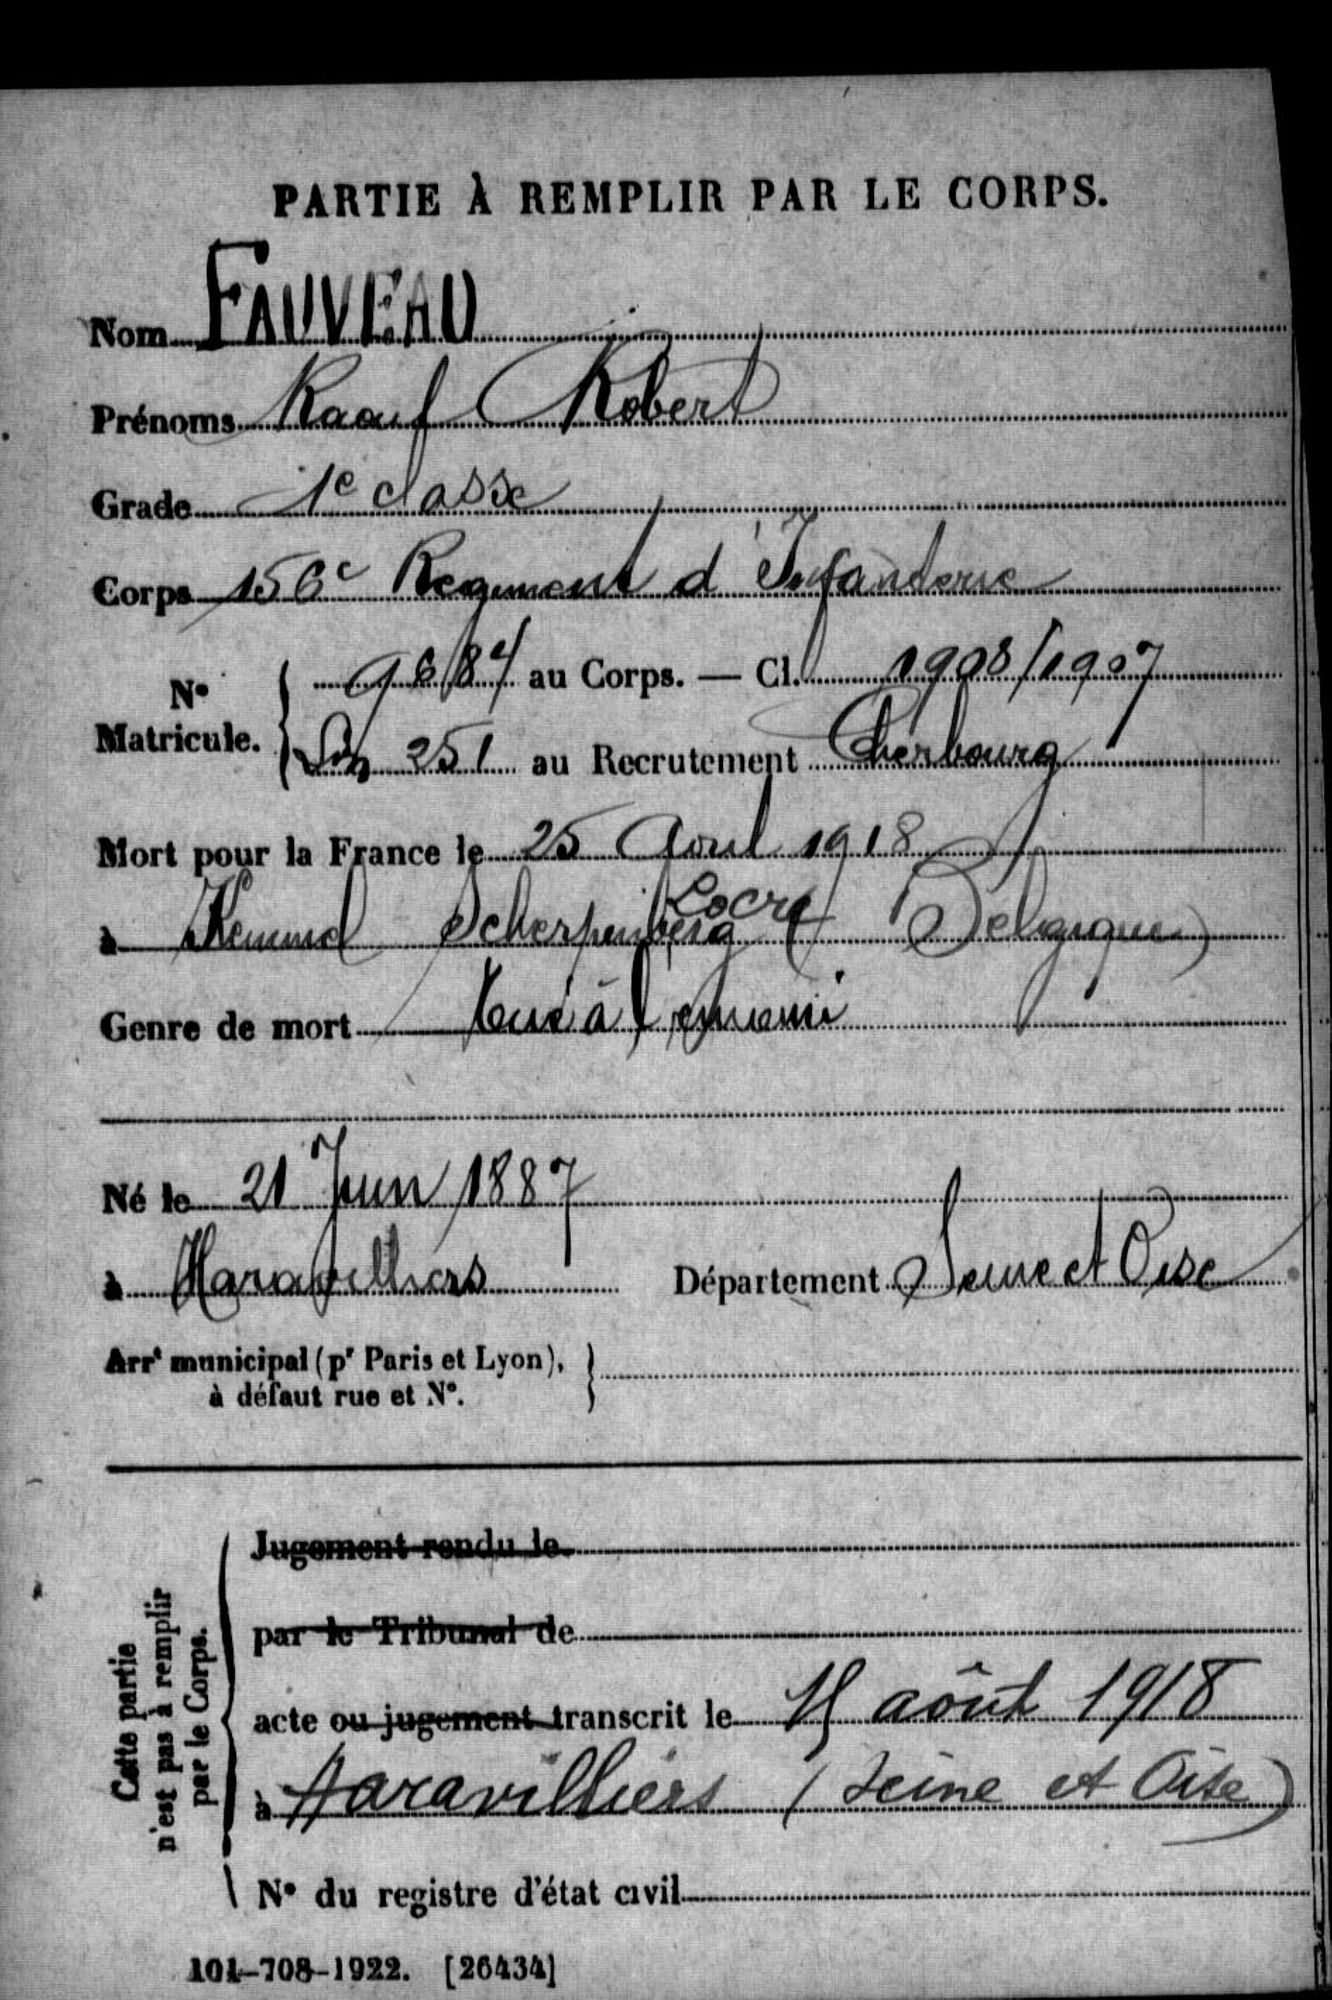 PARTIE À REMPLIR PAR LE CORPS.
Nom FAUVEAU
Prénoms Raoul Robert
Grade 1e classe
Corps 156e Regiment d'Infanterie
N° Matricule. 9684 au Corps. — Cl. 1908/1907
251 au Recrutement Cherbourg
Mort pour la France le 25 Aout 1918
Locre
à Kemmel Scherpenberg (Belgique)
Genre de mort tué à l'ennemi
Né le 21 Juin 1887
à Haravilliers Département Seine et Oise
Arrt municipal (pr Paris et Lyon), à défaut rue et N°.
Cette partie n'est pas à remplir par le Corps.
Jugement rendu le
par le Tribunal de
acte ou jugement transcrit le août 1918
à Haravilliers (Seine et Oise)
N° du registre d'état civil
101-708-1922. [26434]